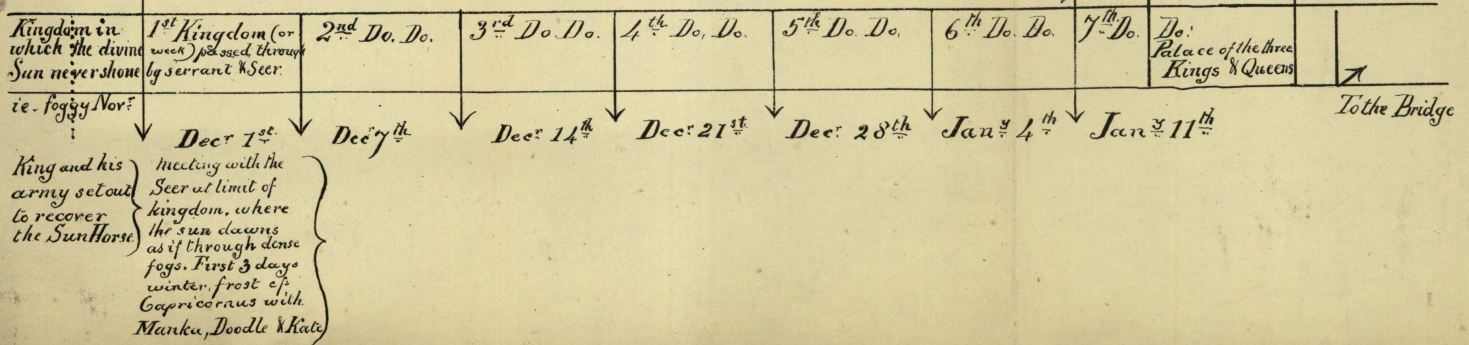 Kingdom in
which the divine
Sun never shone
1st Kingdom (or
week) passed through
by servant & Seer.
2nd Do. Do.
3rd Do. Do.
4th Do. Do.
5th Do. Do.
6th Do. Do.
7th Do.
Do:
Palace of the three
Kings & Queens
ie. foggy Novr
Decr 1st
Decr 7th
Decr 14th
Decr 21st
Decr 28th
Jany 4th
Jany 11th
To the Bridge
King and his
army set out
to recover
the Sun Horse
Meeting with the
Seer at limit of
kingdom, where
the sun dawns
as if through dense
fogs. First 3 days
winter, frost cf.
Capricornus with
Manka, Doodle & Kate